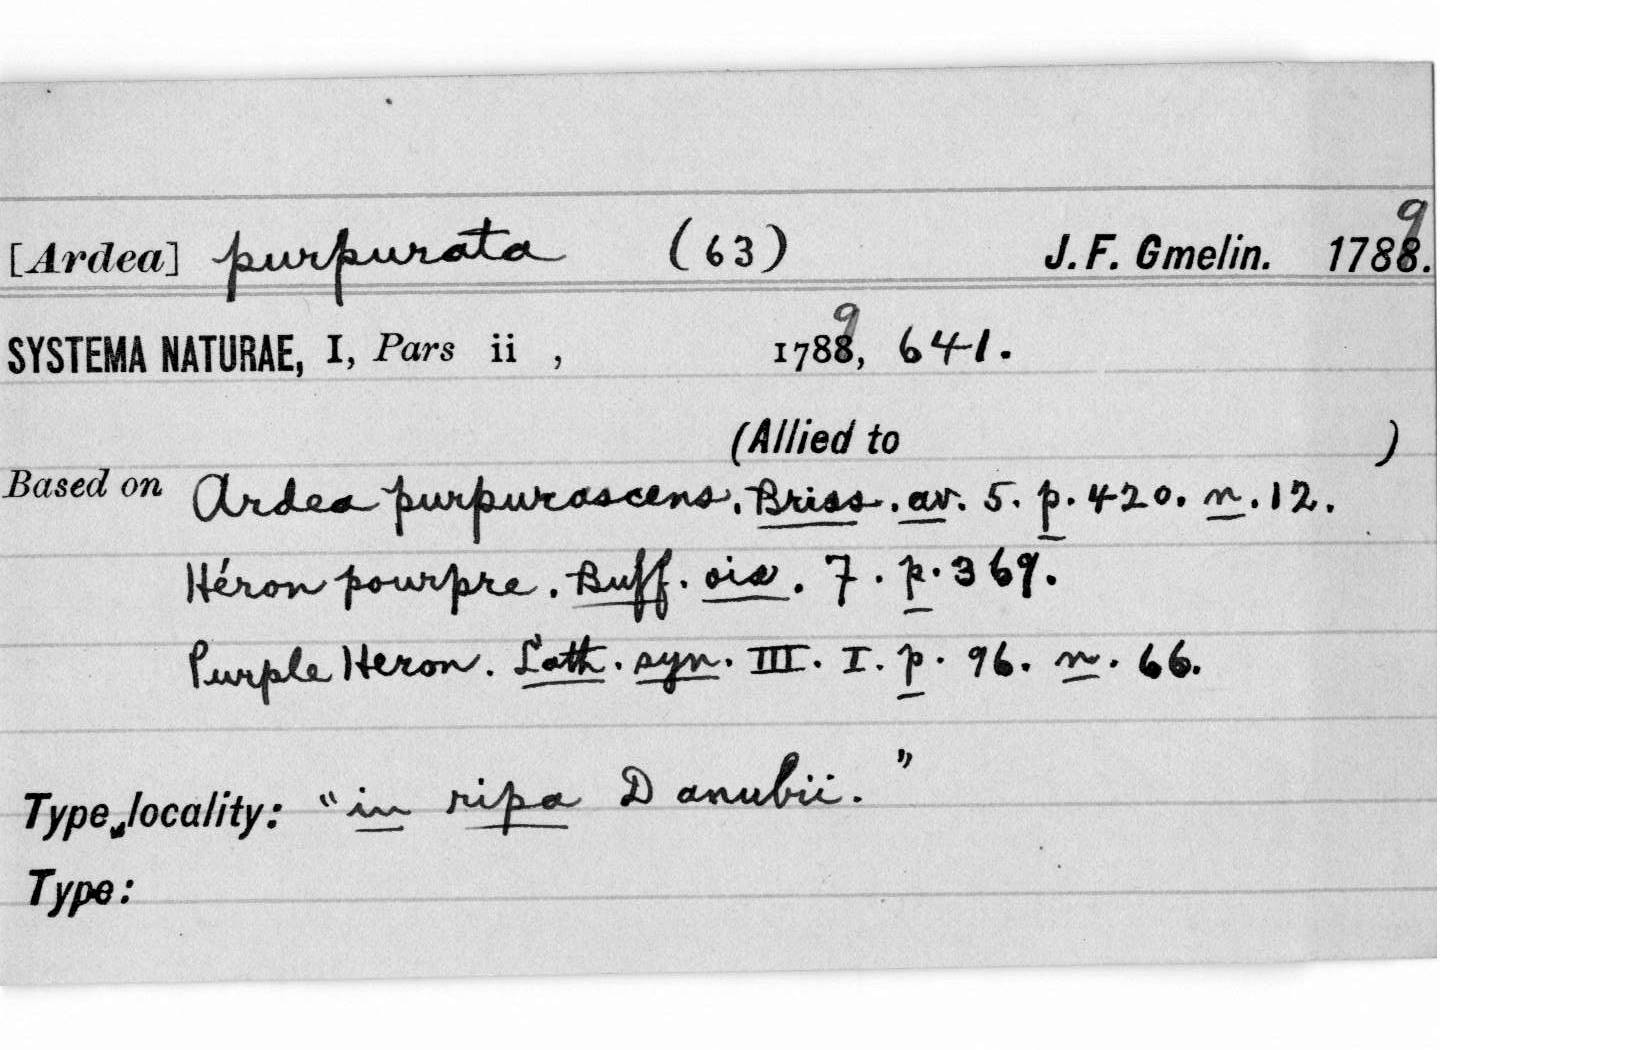 [Ardea] purpurata (63) J. F. Gmelin. 1789.
SYSTEMA NATURAE, I, Pars ii , 1789, 641.
(Allied to )
Based on Ardea purpurascens. Briss. av. 5. p. 420. n. 12.
Héron pourpre. Buff. ois. 7. p. 369.
Purple Heron. Lath. syn. III. I. p. 96. n. 66.
Type locality: "in ripa Danubii."
Type: